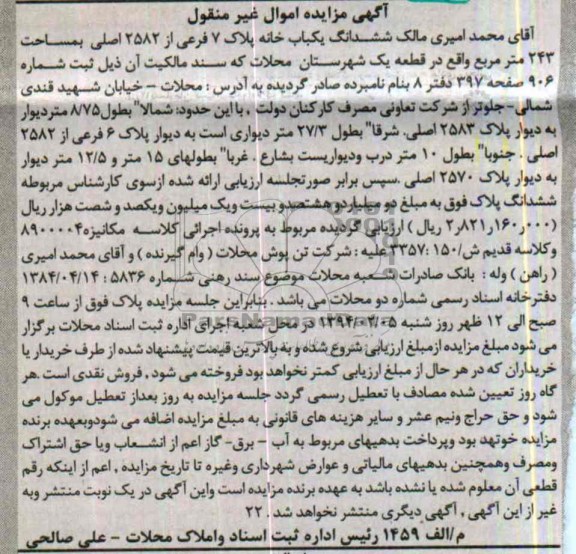 آگهی مزایده اموال غیر منقول
آقای محمد امیری مالک ششدانگ یکباب خانه پلاک ۷ فرعی از ۲۵۸۲ اصلی بمساحت
۲۴۳ متر مربع واقع در قطعه یک شهرستان محلات که سند مالکیت آن ذیل ثبت شماره
۹۰۶ صفحه ۳۹۷ دفتر ۸ بنام نامبرده صادر گردیده به آدرس : محلات – خیابان شهید قندی
شمالی-جلوتر از شرکت تعاونی مصرف کارکنان دولت , با این حدود: شمالا" بطول ۸/۷۵ متردیوار
به دیوار پلاک ۲۵۸۳ اصلی. شرقا" بطول ۲۷/۳ متر دیواری است به دیوار پلاک ۶ فرعی از ۲۵۸۲
اصلی . جنوبا" بطول ۱۰ متر درب ودیواریست بشارع . غربا" بطولهای ۱۵ متر و ۱۲/۵ متر دیوار
به دیوار پلاک ۲۵۷۰ اصلی .سپس برابر صورتجلسه ارزیابی ارائه شده ازسوی کارشناس مربوطه
ششدانگ پلاک فوق به مبلغ دو میلیاردو هشتصدو بیست ویک میلیون ویکصد و شصت هزار ریال
(۲٫۸۲۱٫۱۶۰٫۰۰۰ ریال ) ارزیابی گردیده مربوط به پرونده اجرائی کلاسه مکانیزه۸۹۰۰۰۰۴
وکلاسه قدیم ش/۱۵۰ :۳۳۵۷ علیه : شرکت تن پوش محلات ( وام گیرنده ) و آقای محمد امیری
( راهن ) وله : بانک صادرات شعبه محلات موضوع سند رهنی شماره ۵۸۳۶ : ۱۳۸۴/۰۴/۱۴
دفترخانه اسناد رسمی شماره دو محلات می باشد . بنابراین جلسه مزایده پلاک فوق از ساعت ۹
صبح الی ۱۲ ظهر روز شنبه در محل شعبه اجرای اداره ثبت اسناد محلات برگزار
می شود مبلغ مزایده ازمبلغ ارزیابی شروع شده و به بالاترین قیمت پیشنهاد شده از طرف خریدار یا
خریداران که در هر حال از مبلغ ارزیابی کمتر نخواهد بود فروخته می شود , فروش نقدی است .هر
گاه روز تعیین شده مصادف با تعطیل رسمی گردد جلسه مزایده به روز بعداز تعطیل موکول می
شود و حق حراج ونیم عشر و سایر هزینه های قانونی به مبلغ مزایده اضافه می شودوبعهده برنده
مزایده خوتهد بود وپرداخت بدهیهای مربوط به آب – برق- گاز اعم از انشعاب ویا حق اشتراک
ومصرف وهمچنین بدهیهای مالیاتی و عوارض شهرداری وغیره تا تاریخ مزایده , اعم از اینکه رقم
قطعی آن معلوم شده یا نشده باشد به عهده برنده مزایده است واین آگهی در یک نوبت منتشر وبه
غیر از این آگهی , آگهی دیگری منتشر نخواهد شد . ۲۲
م/الف ۱۴۵۹ رئیس اداره ثبت اسناد واملاک محلات – علی صالحی